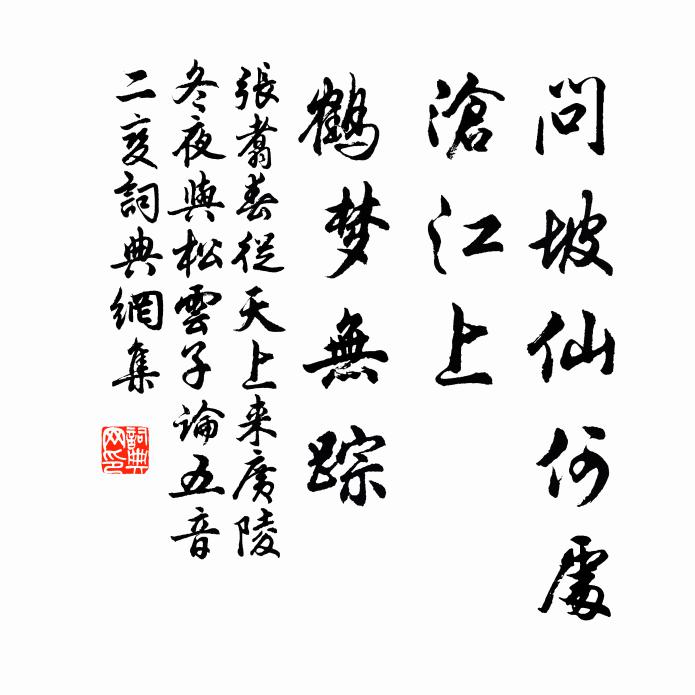 問坡仙何處
滄江上
鶴梦無踪
張翥春從天上来廣陵
冬夜與松雲子論五音
二變詞典網集
詞典
网印